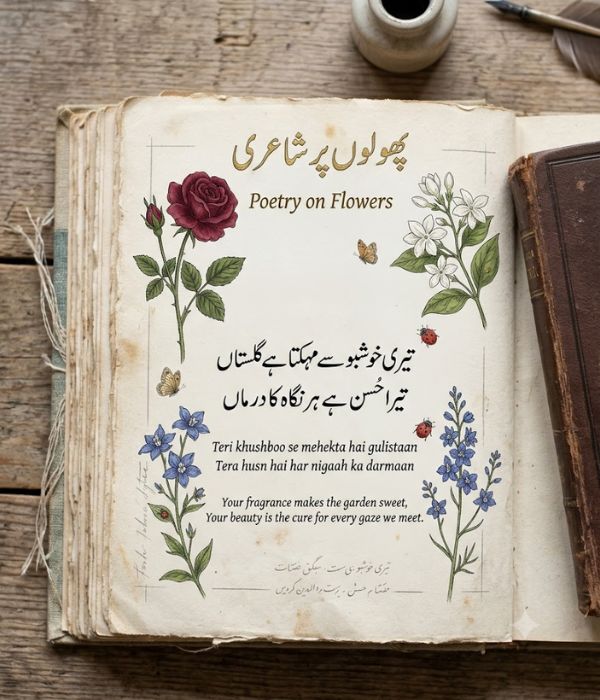 پھولوں پر شاعری
Poetry on Flowers
تیری خوشبو سے مہکتا ہے گلستاں
تیرا حُسن ہے ہر نگاہ کا درماں
Teri khushboo se mehekta hai gulistaan
Tera husn hai har nigaah ka darmaan
Your fragrance makes the garden sweet,
Your beauty is the cure for every gaze we meet.